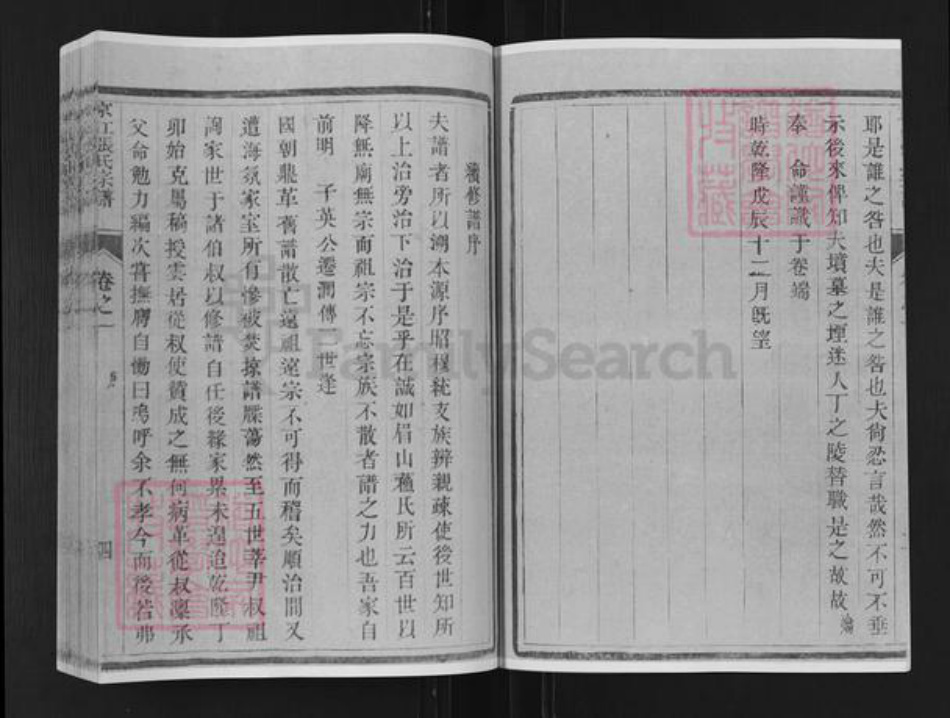 耶是誰之咎也夫是誰之咎也夫尙忍言哉然不可不垂
示後來俾知夫墳墓之堙迷人丁之陵替職是之故故
奉　命謹識于卷端
時乾隆戊辰十二月旣望
續修譜序
夫譜者所以溯本源序昭穆統支族辨親疎使後世知所
以上治旁治下治于是乎在誠如眉山蘓氏所云百世以
降無廟無宗而祖宗不忘宗族不散者譜之力也吾家自
前明　子英公遷潤傳一世逢
國朝鼎革舊譜散亡遠祖遠宗不可得而稽矣順治間又
遭海氛家室所有慘被焚掠譜牒蕩然至五世莘尹叔祖
詢家世于諸伯叔以修譜自任後緣家累未遑迨乾隆丁
卯始克屬稿授雲居從叔使贊成之無何病革從叔稟承
父命勉力編次嘗撫膺自慟曰嗚呼余不孝今而後若弗
京江張氏宗譜
卷之一
四
FamilySearch